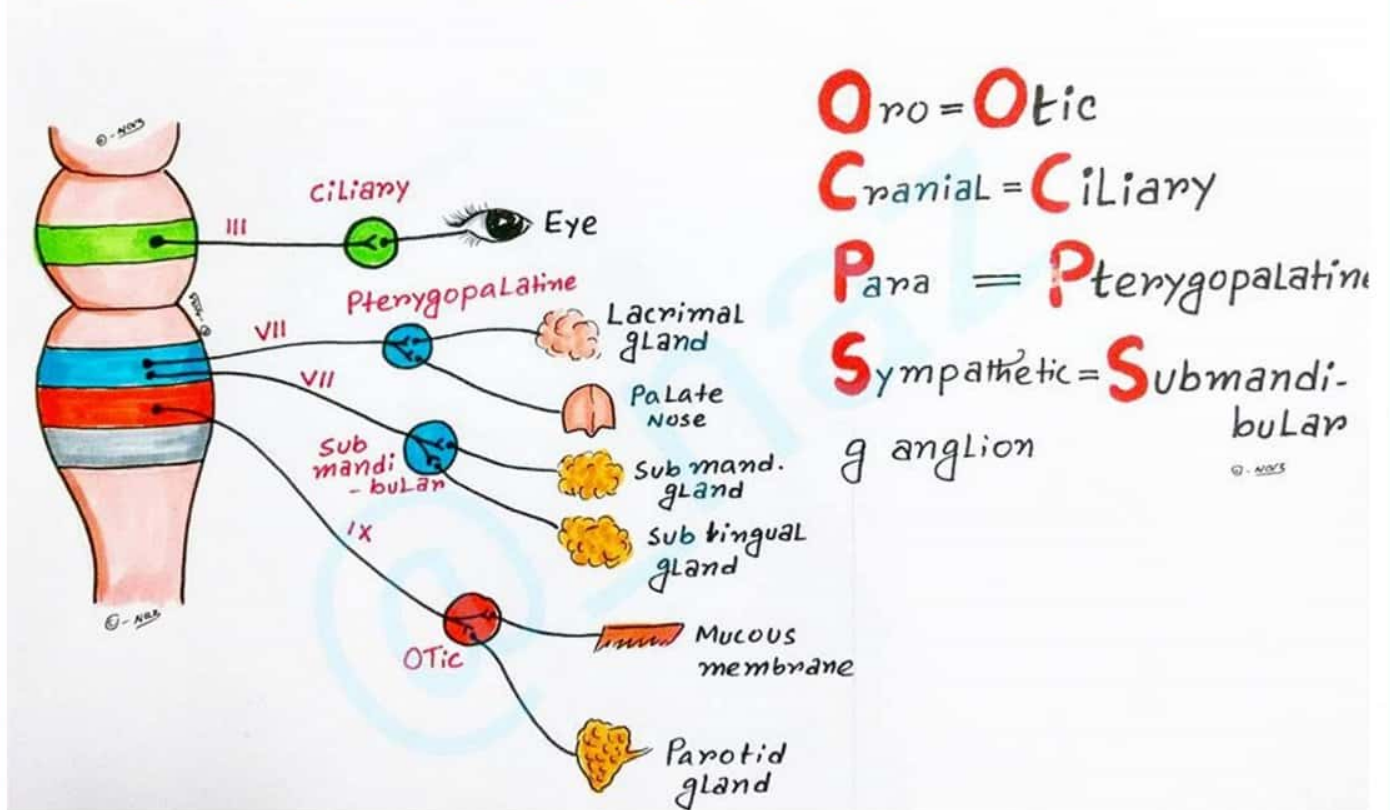 ©-Naz
III
Ciliary
Eye
Pterygopalatine
VII
Lacrimal
gland
Palate
Nose
VII
Sub
mandi
-bular
Sub mand.
gland
Sub lingual
gland
IX
Otic
Mucous
membrane
Parotid
gland
©-Naz
Oro = Otic
Cranial = Ciliary
Para = Pterygopalatine
Sympathetic = Submandi-
bular
ganglion
©-Naz
@_naz